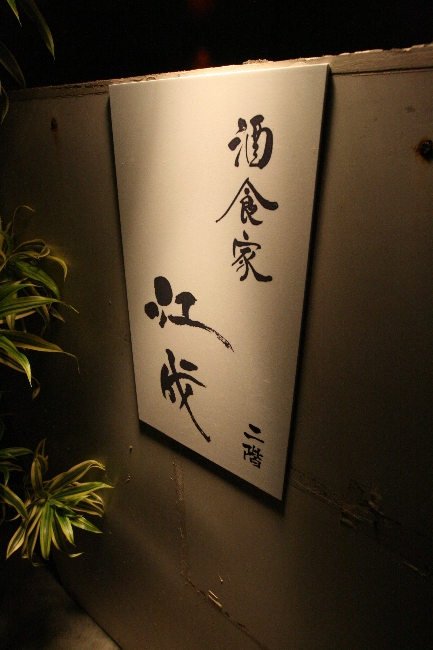 酒食家
江成
二階